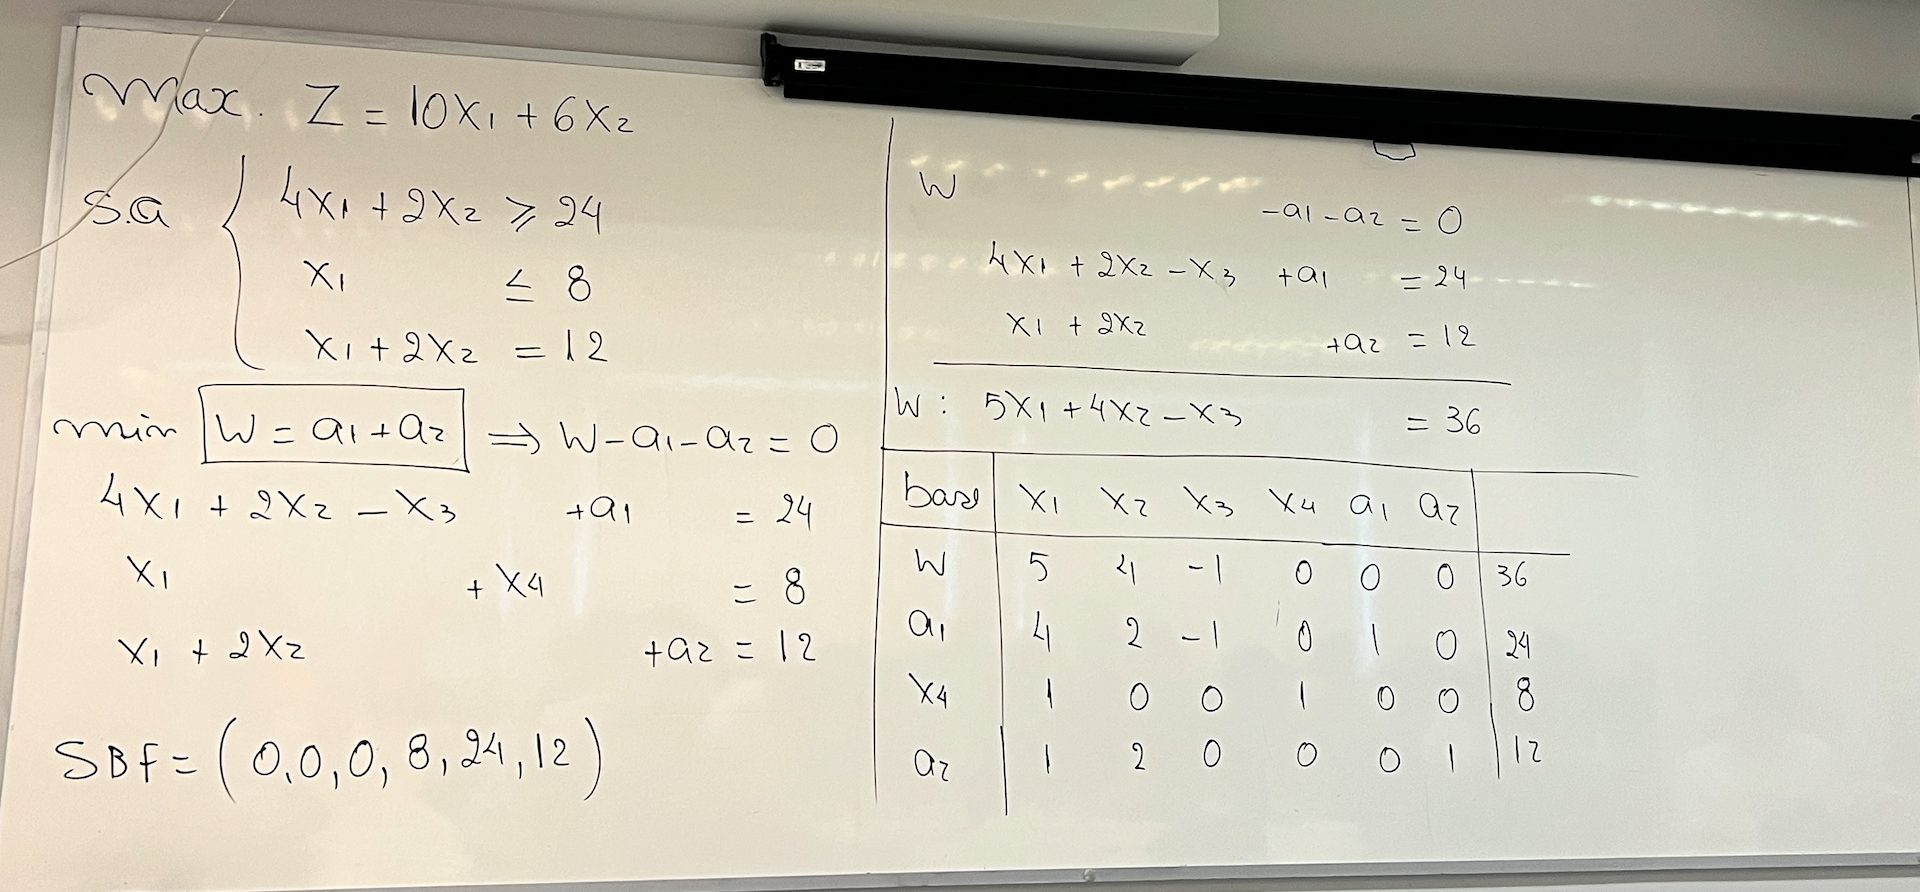 Max. Z = 10x₁ + 6x₂
S.a
4x₁ + 2x₂ ≥ 24
x₁ ≤ 8
x₁ + 2x₂ = 12
min W = a₁ + a₂ ⇒ W - a₁ - a₂ = 0
4x₁ + 2x₂ - x₃ + a₁ = 24
x₁ + x₄ = 8
x₁ + 2x₂ + a₂ = 12
SBF = (0,0,0,8,24,12)
W - a₁ - a₂ = 0
4x₁ + 2x₂ - x₃ + a₁ = 24
x₁ + 2x₂ + a₂ = 12
W: 5x₁ + 4x₂ - x₃ = 36
base x₁ x₂ x₃ x₄ a₁ a₂
W 5 4 -1 0 0 0 36
a₁ 4 2 -1 0 1 0 24
x₄ 1 0 0 1 0 0 8
a₂ 1 2 0 0 0 1 12